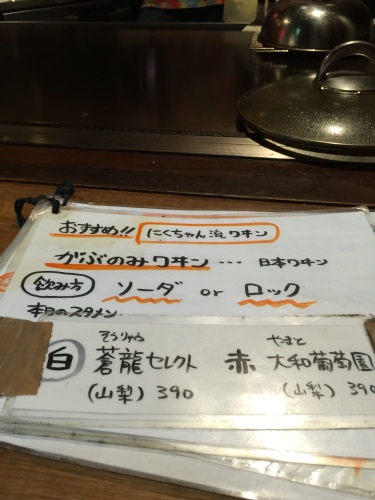 おすすめ!! にくちゃん流ワキン
がぶのみワキン … 日本ワキン
飲み方 ソーダ or ロック
本日のスタメン
そうりゅう やまと
白 蒼龍セレクト 赤 大和葡萄園
(山梨) 390 (山梨) 390